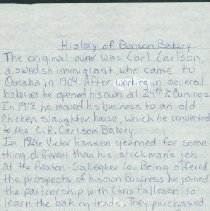 History of Benson Bakery
The original owner was Carl Carlson,
a Swedish immigrant, who came to
Omaha in 1904. After working in several
bakeries he opened his own at 24th & Cuming.
In 1918 he moved his business to an old
chicken slaughter house, which he converted
to the C.R. Carlson Bakery.
In 1926 Victor Hansen yearned for some
thing different than his stockman's job
at the Paxton-Gallagher Co. Being offered
the prospects of his own business he joined
the partnership with Chris Tallesson, to
learn the baking trade. They purchased